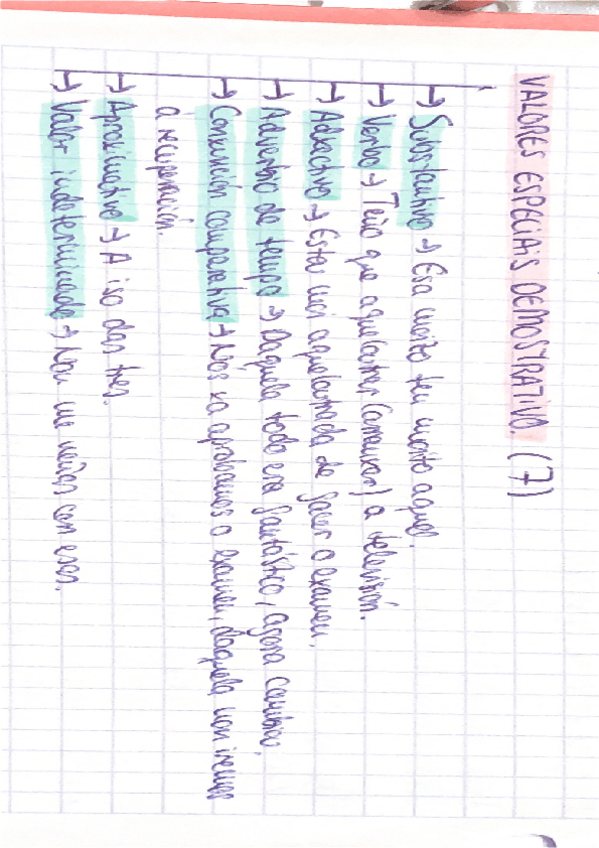 VALORES ESPECIAIS DEMOSTRATIVO. (7)
→ Substantivo → Esa moito ten moito aquel.
→ Verbo → Teño que aquelantrar (arranxar) a televisión.
→ Adxectivo → Estou moi aquelantrada de facer o examen.
→ Adverbio de tempo → Daquela todo era fantástico, agora cambiou.
→ Conxunción comparativa → Nós xa aprobamos o examen, daquela non iremos
á recuperación.
→ Aproximativo → A iso das tres.
→ Valor indeterminado → Non me veñas con esas.